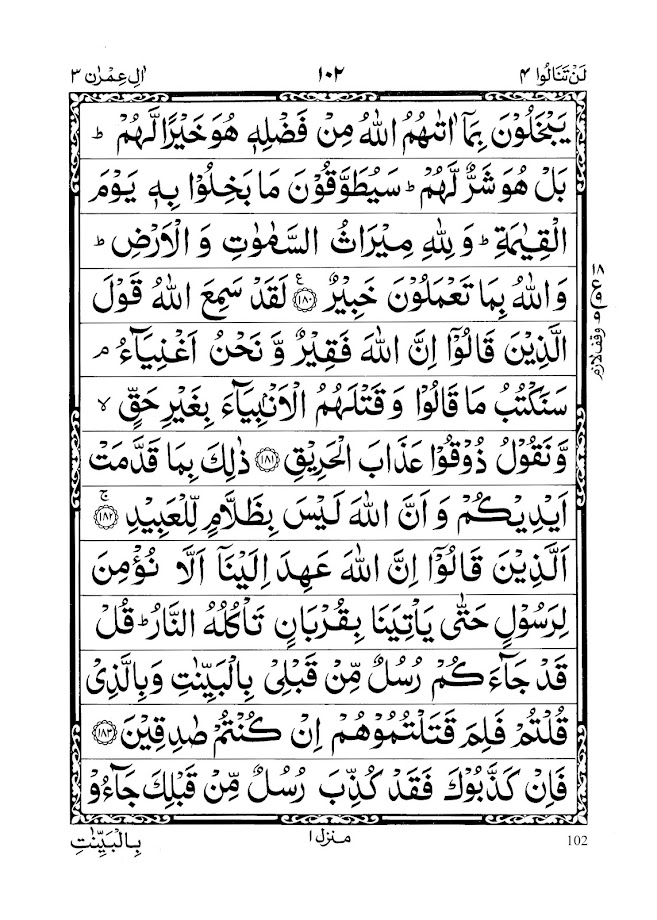 لَنْ تَنَالُوا ۴ ۱۰۲ اٰلِ عِمْرٰن ۳
يَبْخَلُوْنَ بِمَآ اٰتٰىهُمُ اللّٰهُ مِنْ فَضْلِهٖ هُوَ خَيْرًا لَّهُمْ ؕ
بَلْ هُوَ شَرٌّ لَّهُمْ ؕ سَيُطَوَّقُوْنَ مَا بَخِلُوْا بِهٖ يَوْمَ
الْقِيٰمَةِ ؕ وَ لِلّٰهِ مِيْرَاثُ السَّمٰوٰتِ وَ الْاَرْضِ ؕ
وَاللّٰهُ بِمَا تَعْمَلُوْنَ خَبِيْرٌ ﴿۱۸۰﴾ ع لَقَدْ سَمِعَ اللّٰهُ قَوْلَ
الَّذِيْنَ قَالُوْٓا اِنَّ اللّٰهَ فَقِيْرٌ وَّ نَحْنُ اَغْنِيَآءُ ۘ
سَنَكْتُبُ مَا قَالُوْا وَ قَتْلَهُمُ الْاَنْۢبِيَآءَ بِغَيْرِ حَقٍّ ۙ
وَّ نَقُوْلُ ذُوْقُوْا عَذَابَ الْحَرِيْقِ ﴿۱۸۱﴾ ذٰلِكَ بِمَا قَدَّمَتْ
اَيْدِيْكُمْ وَ اَنَّ اللّٰهَ لَيْسَ بِظَلَّامٍ لِّلْعَبِيْدِ ﴿۱۸۲﴾ ۚ
اَلَّذِيْنَ قَالُوْٓا اِنَّ اللّٰهَ عَهِدَ اِلَيْنَآ اَلَّا نُؤْمِنَ
لِرَسُوْلٍ حَتّٰى يَاْتِيَنَا بِقُرْبَانٍ تَاْكُلُهُ النَّارُ ؕ قُلْ
قَدْ جَآءَكُمْ رُسُلٌ مِّنْ قَبْلِىْ بِالْبَيِّنٰتِ وَبِالَّذِىْ
قُلْتُمْ فَلِمَ قَتَلْتُمُوْهُمْ اِنْ كُنْتُمْ صٰدِقِيْنَ ﴿۱۸۳﴾
فَاِنْ كَذَّبُوْكَ فَقَدْ كُذِّبَ رُسُلٌ مِّنْ قَبْلِكَ جَآءُوْ
بِالْبَيِّنٰتِ
منزل ۱
102
۱۸ ع ۹
م وقف لازم